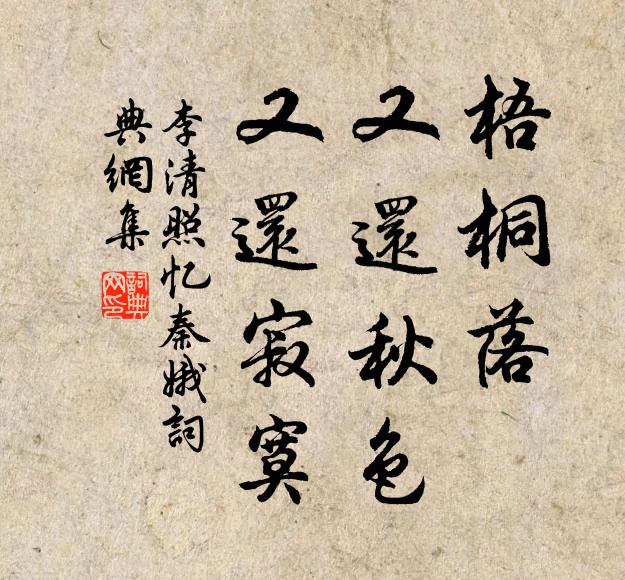 梧桐落
又還秋色
又還寂寞
李清照忆秦娥詞
典網集
詞典网印